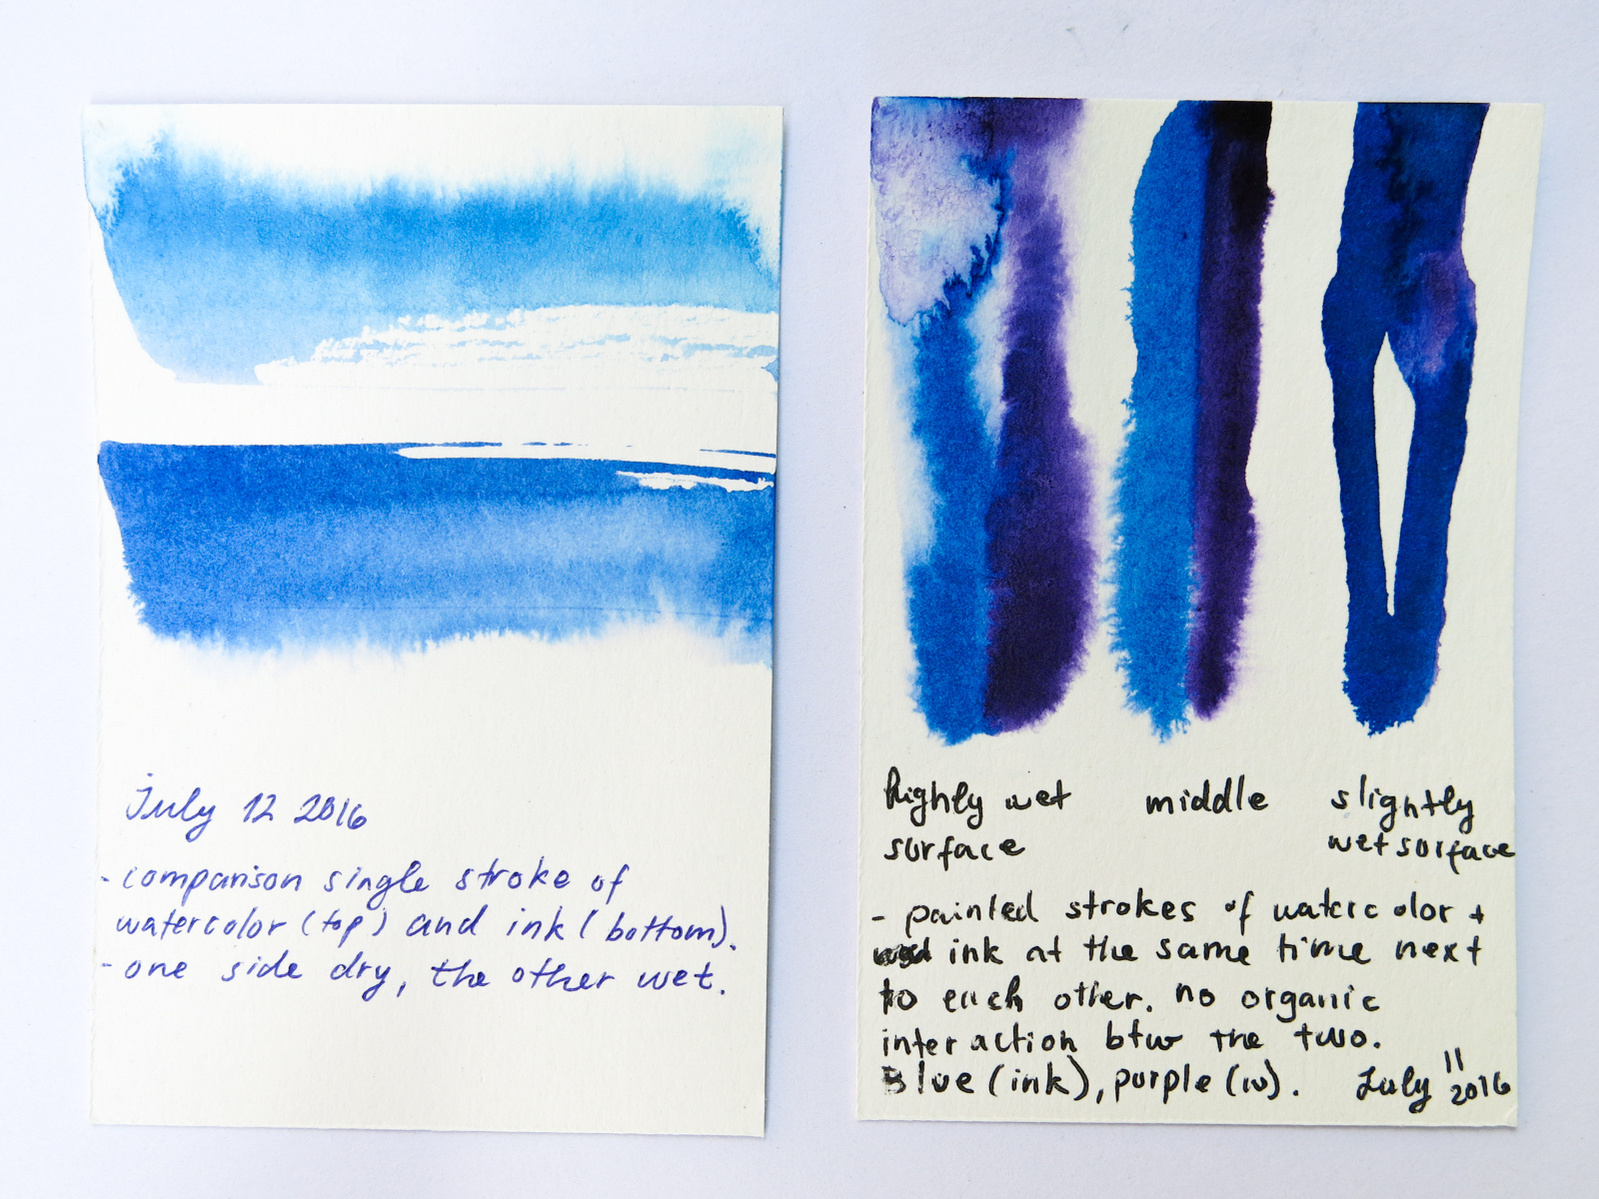 July 12 2016
- comparison single stroke of
watercolor (top) and ink (bottom).
- one side dry, the other wet.
highly wet
surface
middle
slightly
wet surface
- painted strokes of watercolor +
ink at the same time next
to each other. no organic
interaction btw the two.
Blue (ink), purple (w).
July 11
2016